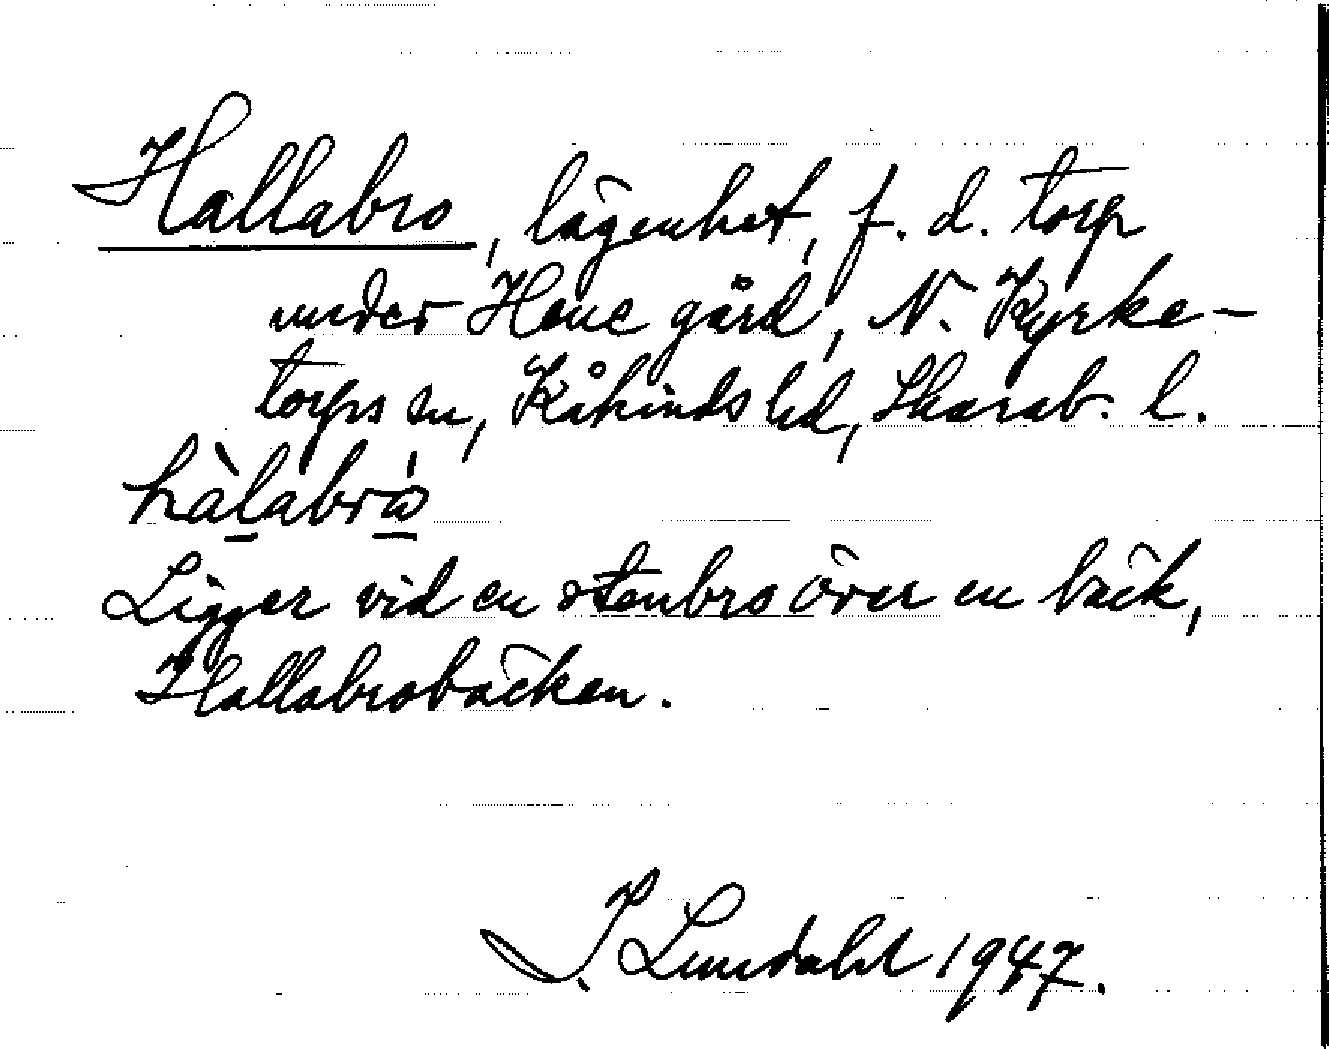 Hallabro, lägenhet, f. d. torp
under Hene gård, N. Kyrke-
torps sn, Kåkinds hd, Skarab. l.
hàlabrá
Ligger vid en stenbro över en bäck,
Hallabrobäcken.
I. Lundahl 1947.